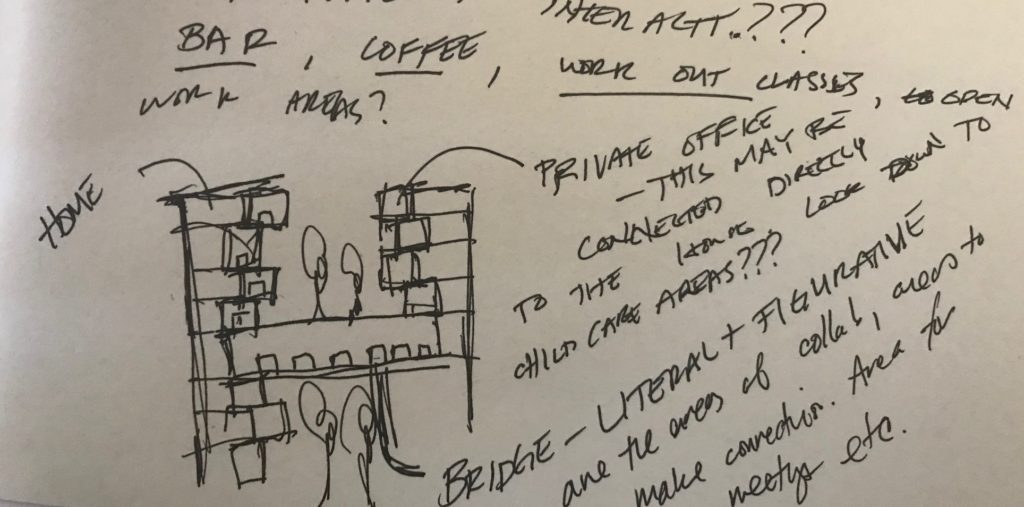 INTERACT..???
BAR, COFFEE, WORK OUT CLASSES, OPEN
WORK AREAS?
HOME
PRIVATE OFFICE
— THIS MAY BE
CONNECTED DIRECTLY
TO THE HOUSE. LOOK DOWN TO
CHILD CARE AREAS???
BRIDGE — LITERAL + FIGURATIVE
are the areas of collab, areas to
make connection. Area for
meetings etc.